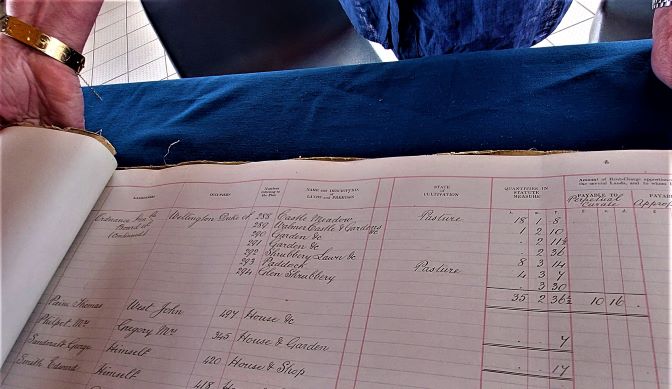 LANDOWNERS OCCUPIERS Numbers referring to the Plan NAME and DESCRIPTION of LANDS and PREMISES STATE of CULTIVATION QUANTITIES IN STATUTE MEASURE Amount of Rent-Charge apportioned the several Lands, and to whom
PAYABLE TO Perpetual Curate PAYABLE Approp
Ordnance Hon. Board of (Continued) Wellington Duke of 288 Castle Meadow Pasture 18 1 8
289 Walmer Castle & Gardens &c 1 2 10
290 Garden &c 2 11½
291 Garden &c 2 36
292 Shrubbery Lawn &c 8 3 14
293 Paddock Pasture 4 3 7
294 Glen Shrubbery 3 30
35 2 36½ 10 16
Pain Thomas West John 497 House &c
Philpot Mr Gregory Mr 345 House & Garden 7
Sandercott George Himself 420 House & Shop 17
Smith Edward Himself 418